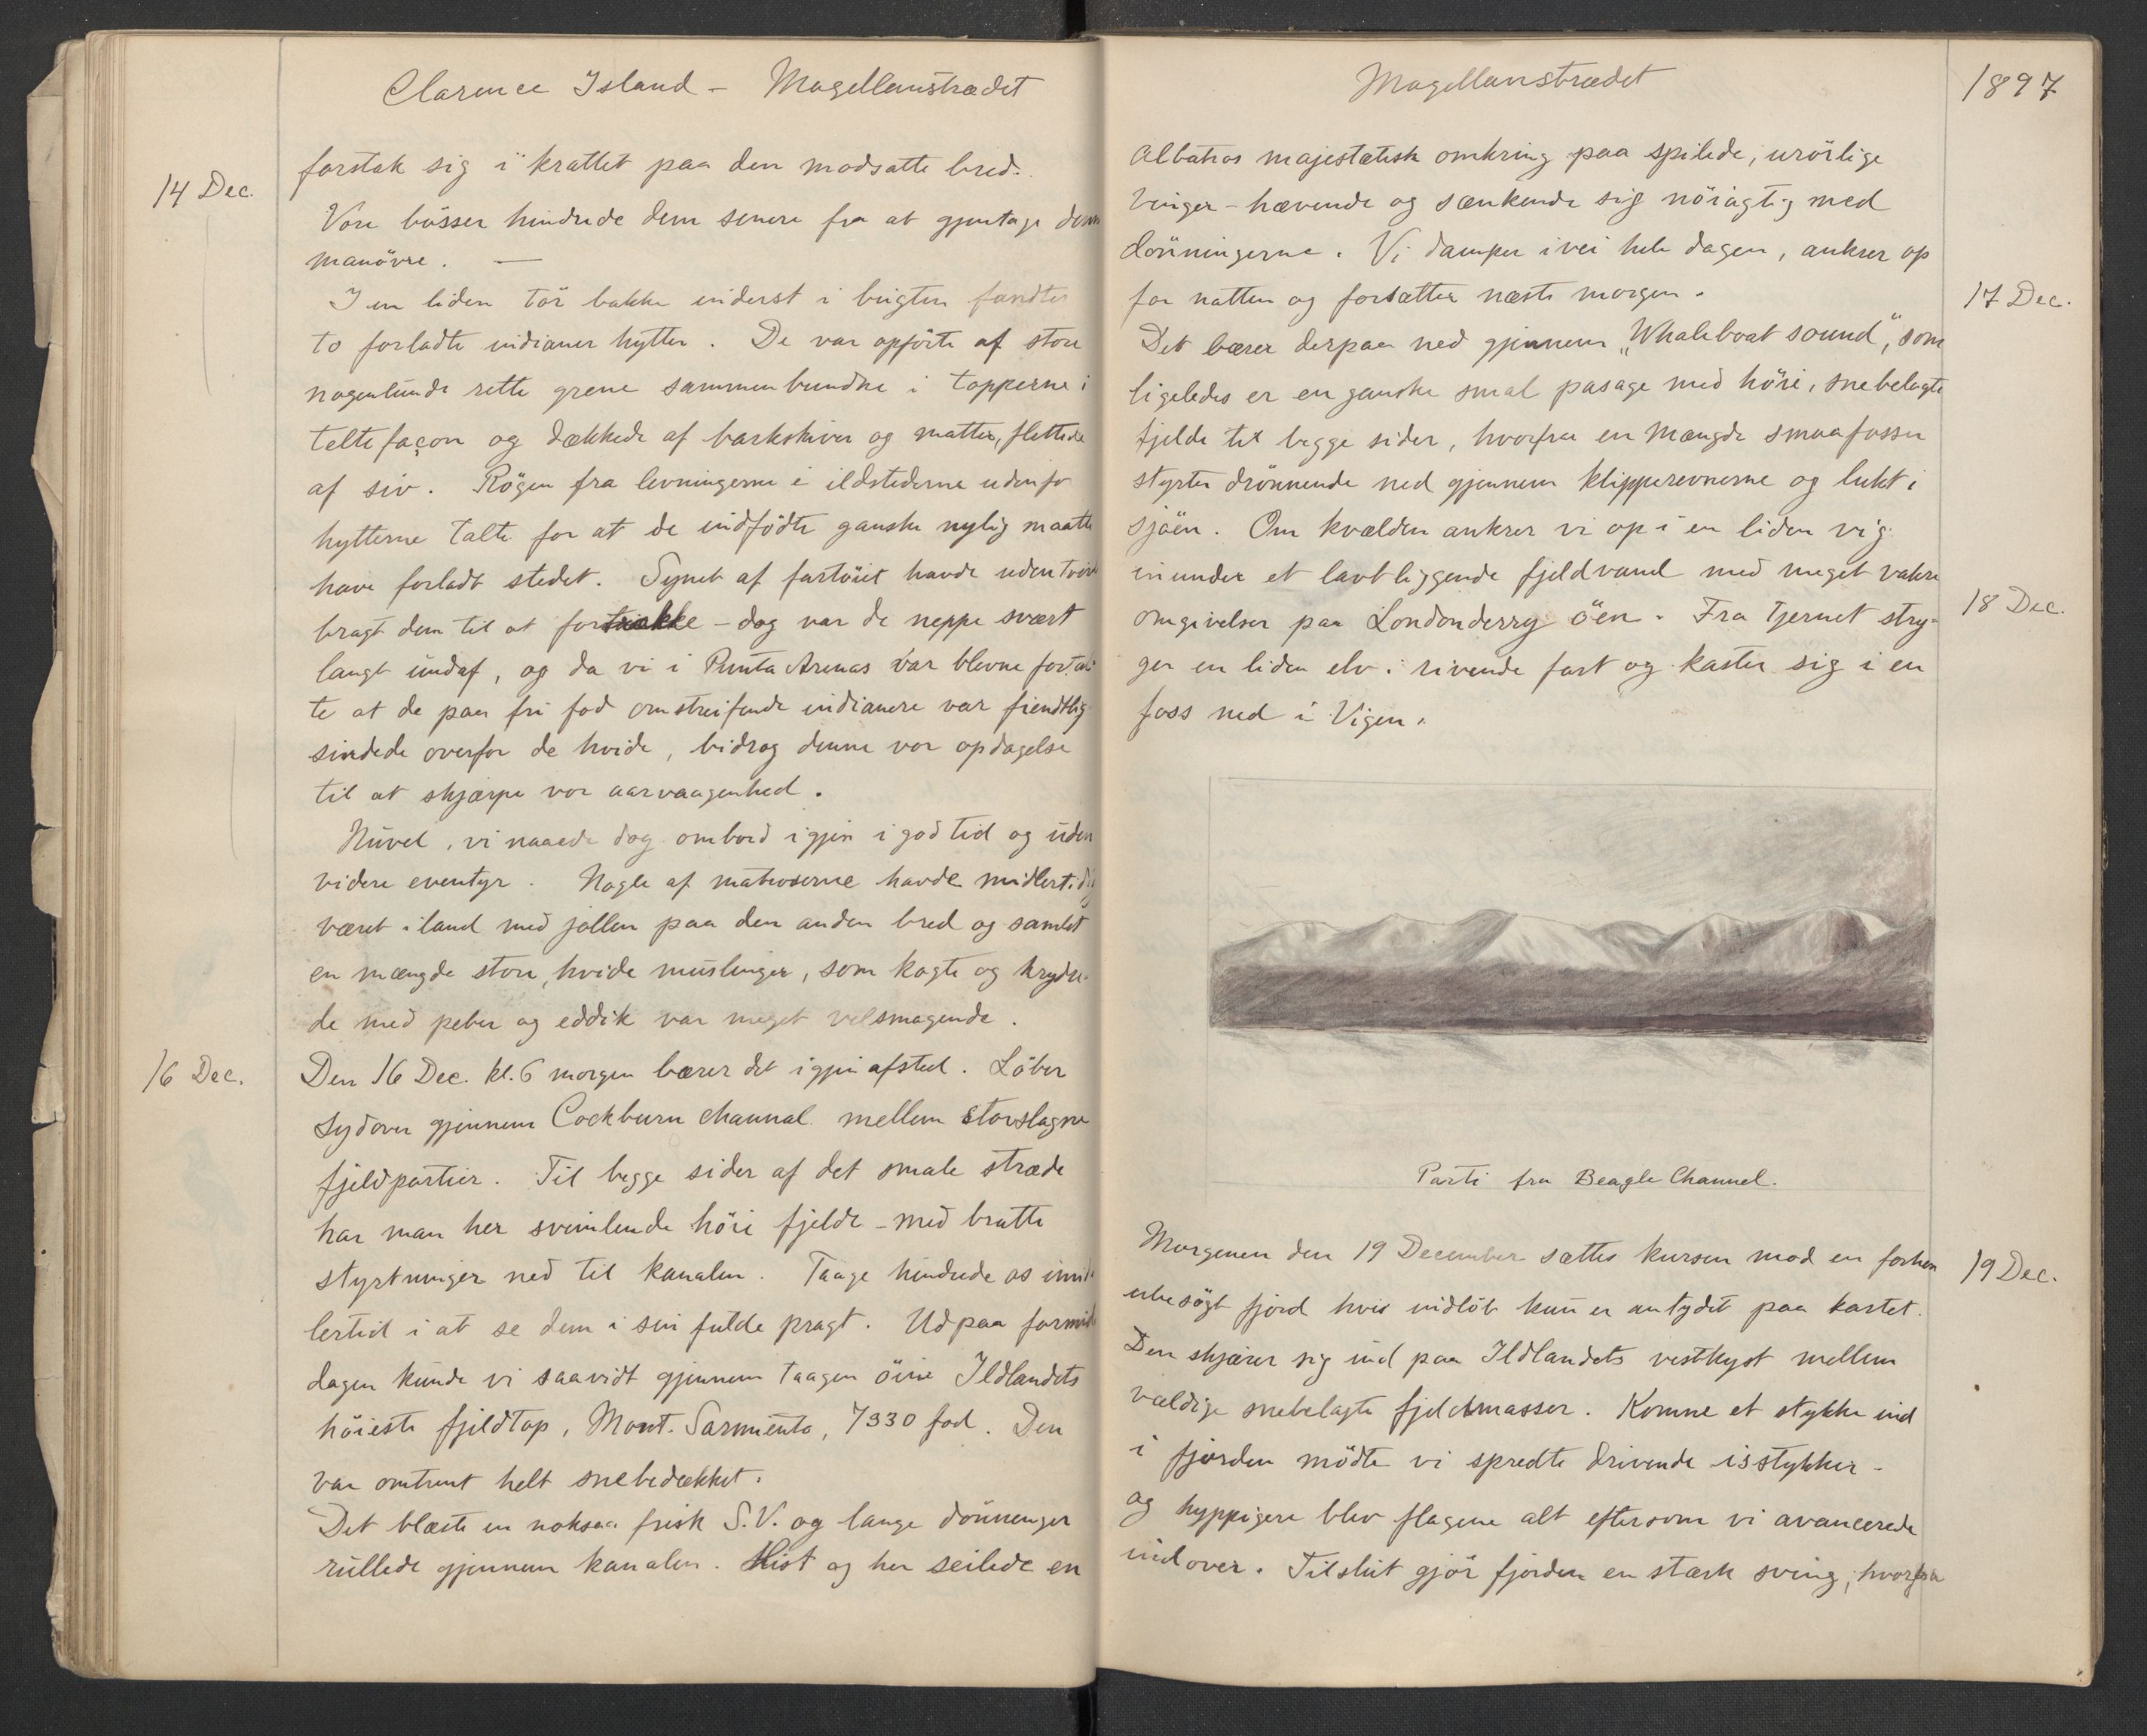 Clarence Island - Magellanstrædet
14 Dec.
forstak sig i krattet paa den modsatte bred.
Vore bösser hindrede dem senere fra at gjentage denne
manövre. —
I en liden tör bakke inderst i bugten fandtes
to forladte indianer hytter. De var opförte af store
nogenlunde rette grene sammenbundne i topperne i
teltefaçon og dækkede af barkskiver og matter, flettede
af siv. Rögen fra levningerne i ildstederne udenfor
hytterne talte for at de indfödte ganske nylig maatte
have forladt stedet. Synet af fartöiet havde uden tvivl
bragt dem til at fortrække - dog var de neppe svært
langt undaf, og da vi i Punta Arenas var blevne fortal-
te at de paa fri fod omstreifende indianere var fiendtlig
sindede overfor de hvide, bidrog denne vor opdagelse
til at skjærpe vor aarvaagenhed.
Nuvel, vi naaede dog ombord igjen i god tid og uden
videre eventyr. Nogle af matroserne havde midlertidig
været iland med jollen paa den anden bred og samlet
en mængde store, hvide muslinger, som kogte og krydre-
de med peber og eddik var meget velsmagende.
16 Dec.
Den 16 Dec. kl. 6 morgen bærer det igjen afsted. Löber
sydover gjennem Cockburn channal mellem storslagne
fjeldpartier. Til begge sider af det smale stræde
har man her svimlende höie fjelde - med bratte
styrtninger ned til kanalen. Taage hindrede os imid-
lertid i at se dem i sin fulde pragt. Ud paa formid-
dagen kunde vi saavidt gjennem taagen öine Ildlandets
höieste fjeldtop, Mont. Sarmiento, 7330 fod. Den
var omtrent helt snebedækket.
Det blæste en noksaa frisk S.V. og lange dönninger
rullede gjennem kanalen. Hist og her seilede en
Magellanstrædet
1897
Albatros majestætisk omkring paa spilede, urörlige
Vinger - hævende og sænkende sig nöiagtig med
dönningerne. Vi damper ivei hele dagen, ankrer op
for natten og forsætter næste morgen.
17 Dec.
Det bærer derpaa ned gjennem „Whaleboat sound", som
ligeledes er en ganske smal pasage med höie, snebelagte
fjelde til begge sider, hvorfra en mængde smaafosser
styrter drönnende ned gjennem klipperevnerne og lukt i
sjöen. Om kvælden ankrer vi op i en liden vig
inunder et lavtliggende fjeldvand med meget vakre
18 Dec.
omgivelser paa Londonderry öen. Fra tjernet stry-
ger en liden elv i rivende fart og kaster sig i en
foss ned i Vigen.
Parti fra Beagle Channel.
Morgenen den 19 December sættes kursen mod en forhen
19 Dec.
ubesögt fjord hvis indlöb kun er antydet paa kartet.
Den skjærer sig ind paa Ildlandets vestkyst mellem
vældige snebelagte fjeldmasser. Komne et stykke ind
i fjorden mödte vi spredte drivende isstykker -
og hyppigere blev flagene alt eftersom vi avancerede
indover. Tilslut gjör fjorden en stærk sving, hvorfra